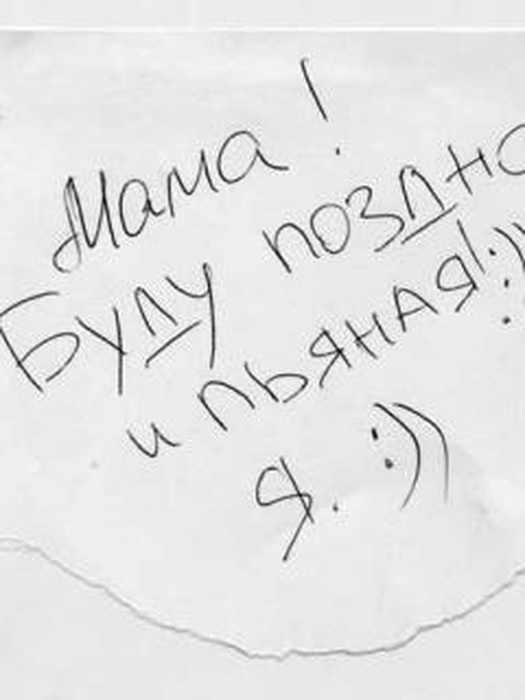 Мама!
Буду поздно
и пьяная!:))
Я. :))